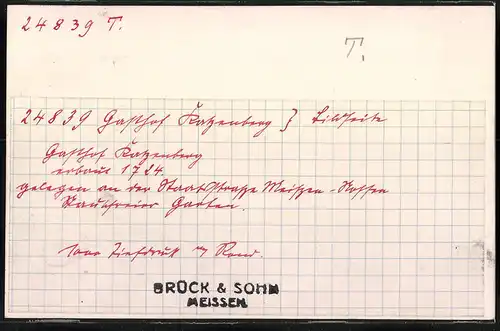 24839 T.
T.
24839 Gasthof Katzenberg } Bildseite
Gasthof Katzenberg
erbaut 1724
gelegen an der Staatsstraße Meißen-Nossen
Staubfreier Garten.
1000 Tiefdruck m Rand.
BRÜCK & SOHN
MEISSEN